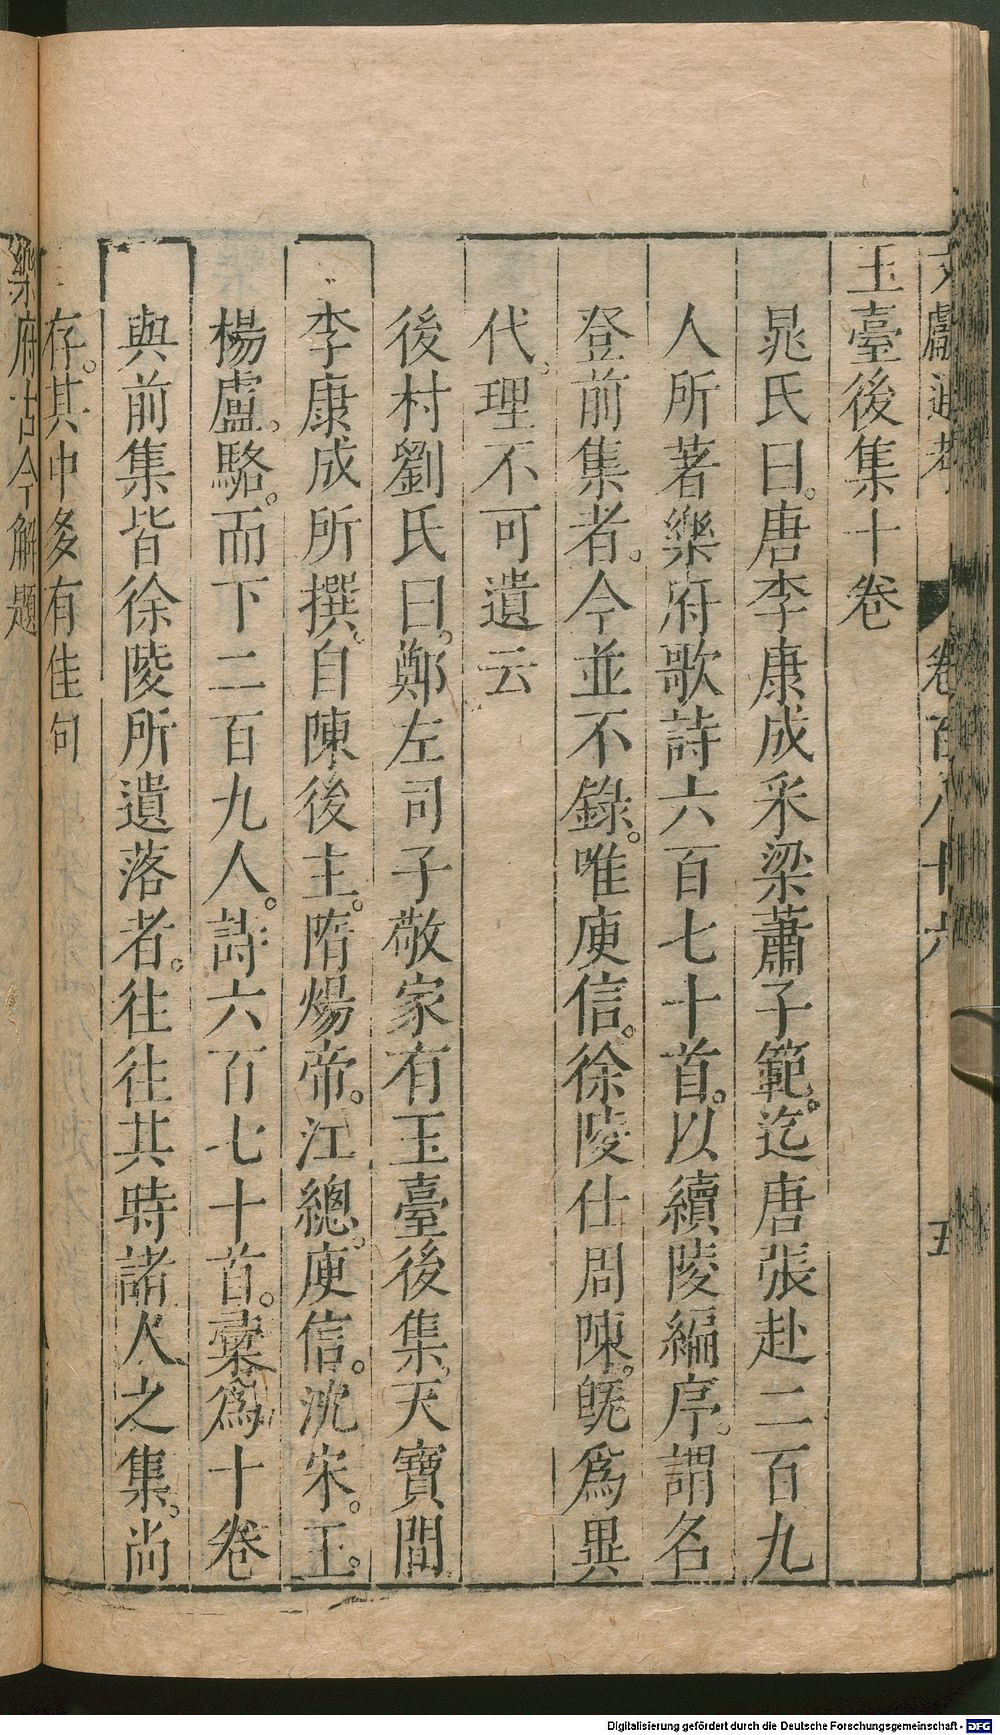 文獻通考 卷百八十六 五
玉臺後集十卷
晁氏曰。唐李康成采梁蕭子範。迄唐張赴二百九
人所著樂府歌詩六百七十首。以續陵編序。謂名
登前集者。今並不錄。唯庾信。徐陵仕周陳。旣爲異
代。理不可遺云
後村劉氏曰。鄭左司子敬家有玉臺後集。天寶間
李康成所撰。自陳後主。隋煬帝。江總。庾信。沈宋。王。
楊盧。駱。而下二百九人。詩六百七十首。彙爲十卷
與前集皆徐陵所遺落者。往往其時諸人之集。尚
存。其中多有佳句
樂府古今解題
Digitalisierung gefördert durch die Deutsche Forschungsgemeinschaft - DFG